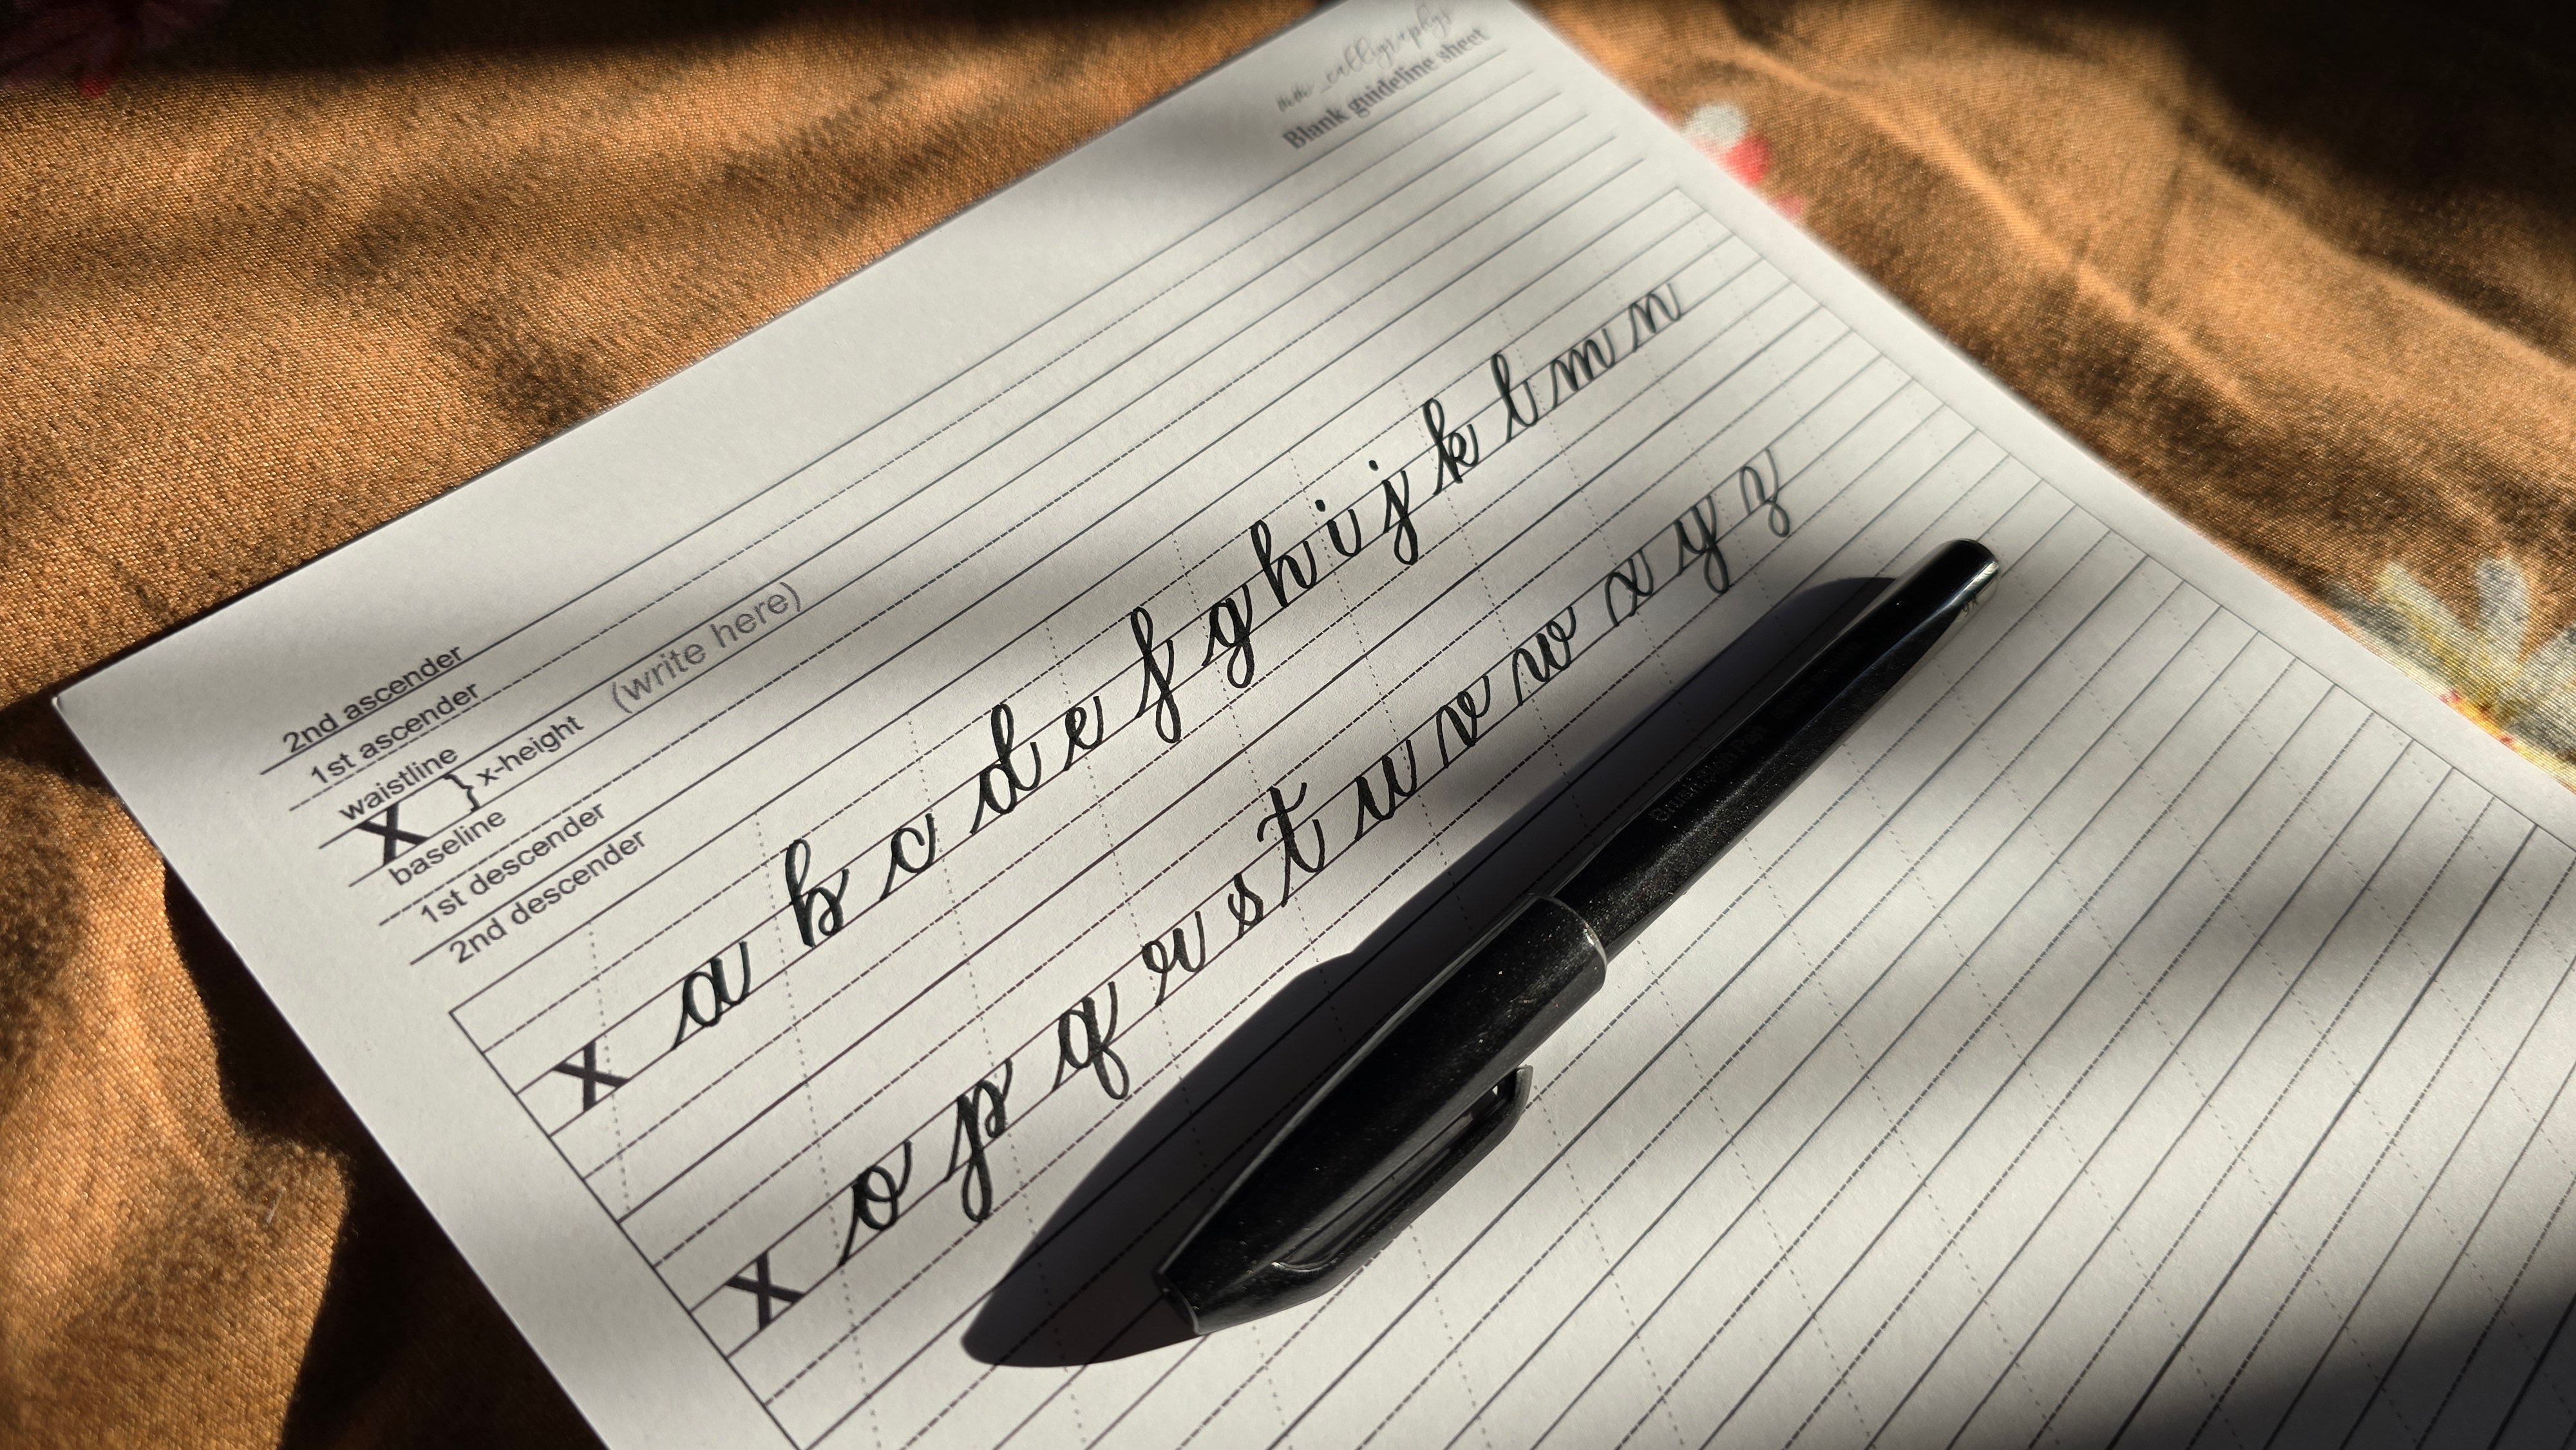 Blank guideline sheet
2nd ascender
1st ascender
waistline
X } x-height (write here)
baseline
1st descender
2nd descender
x a b c d e f g h i j k l m n
x o p q r s t u v w x y z